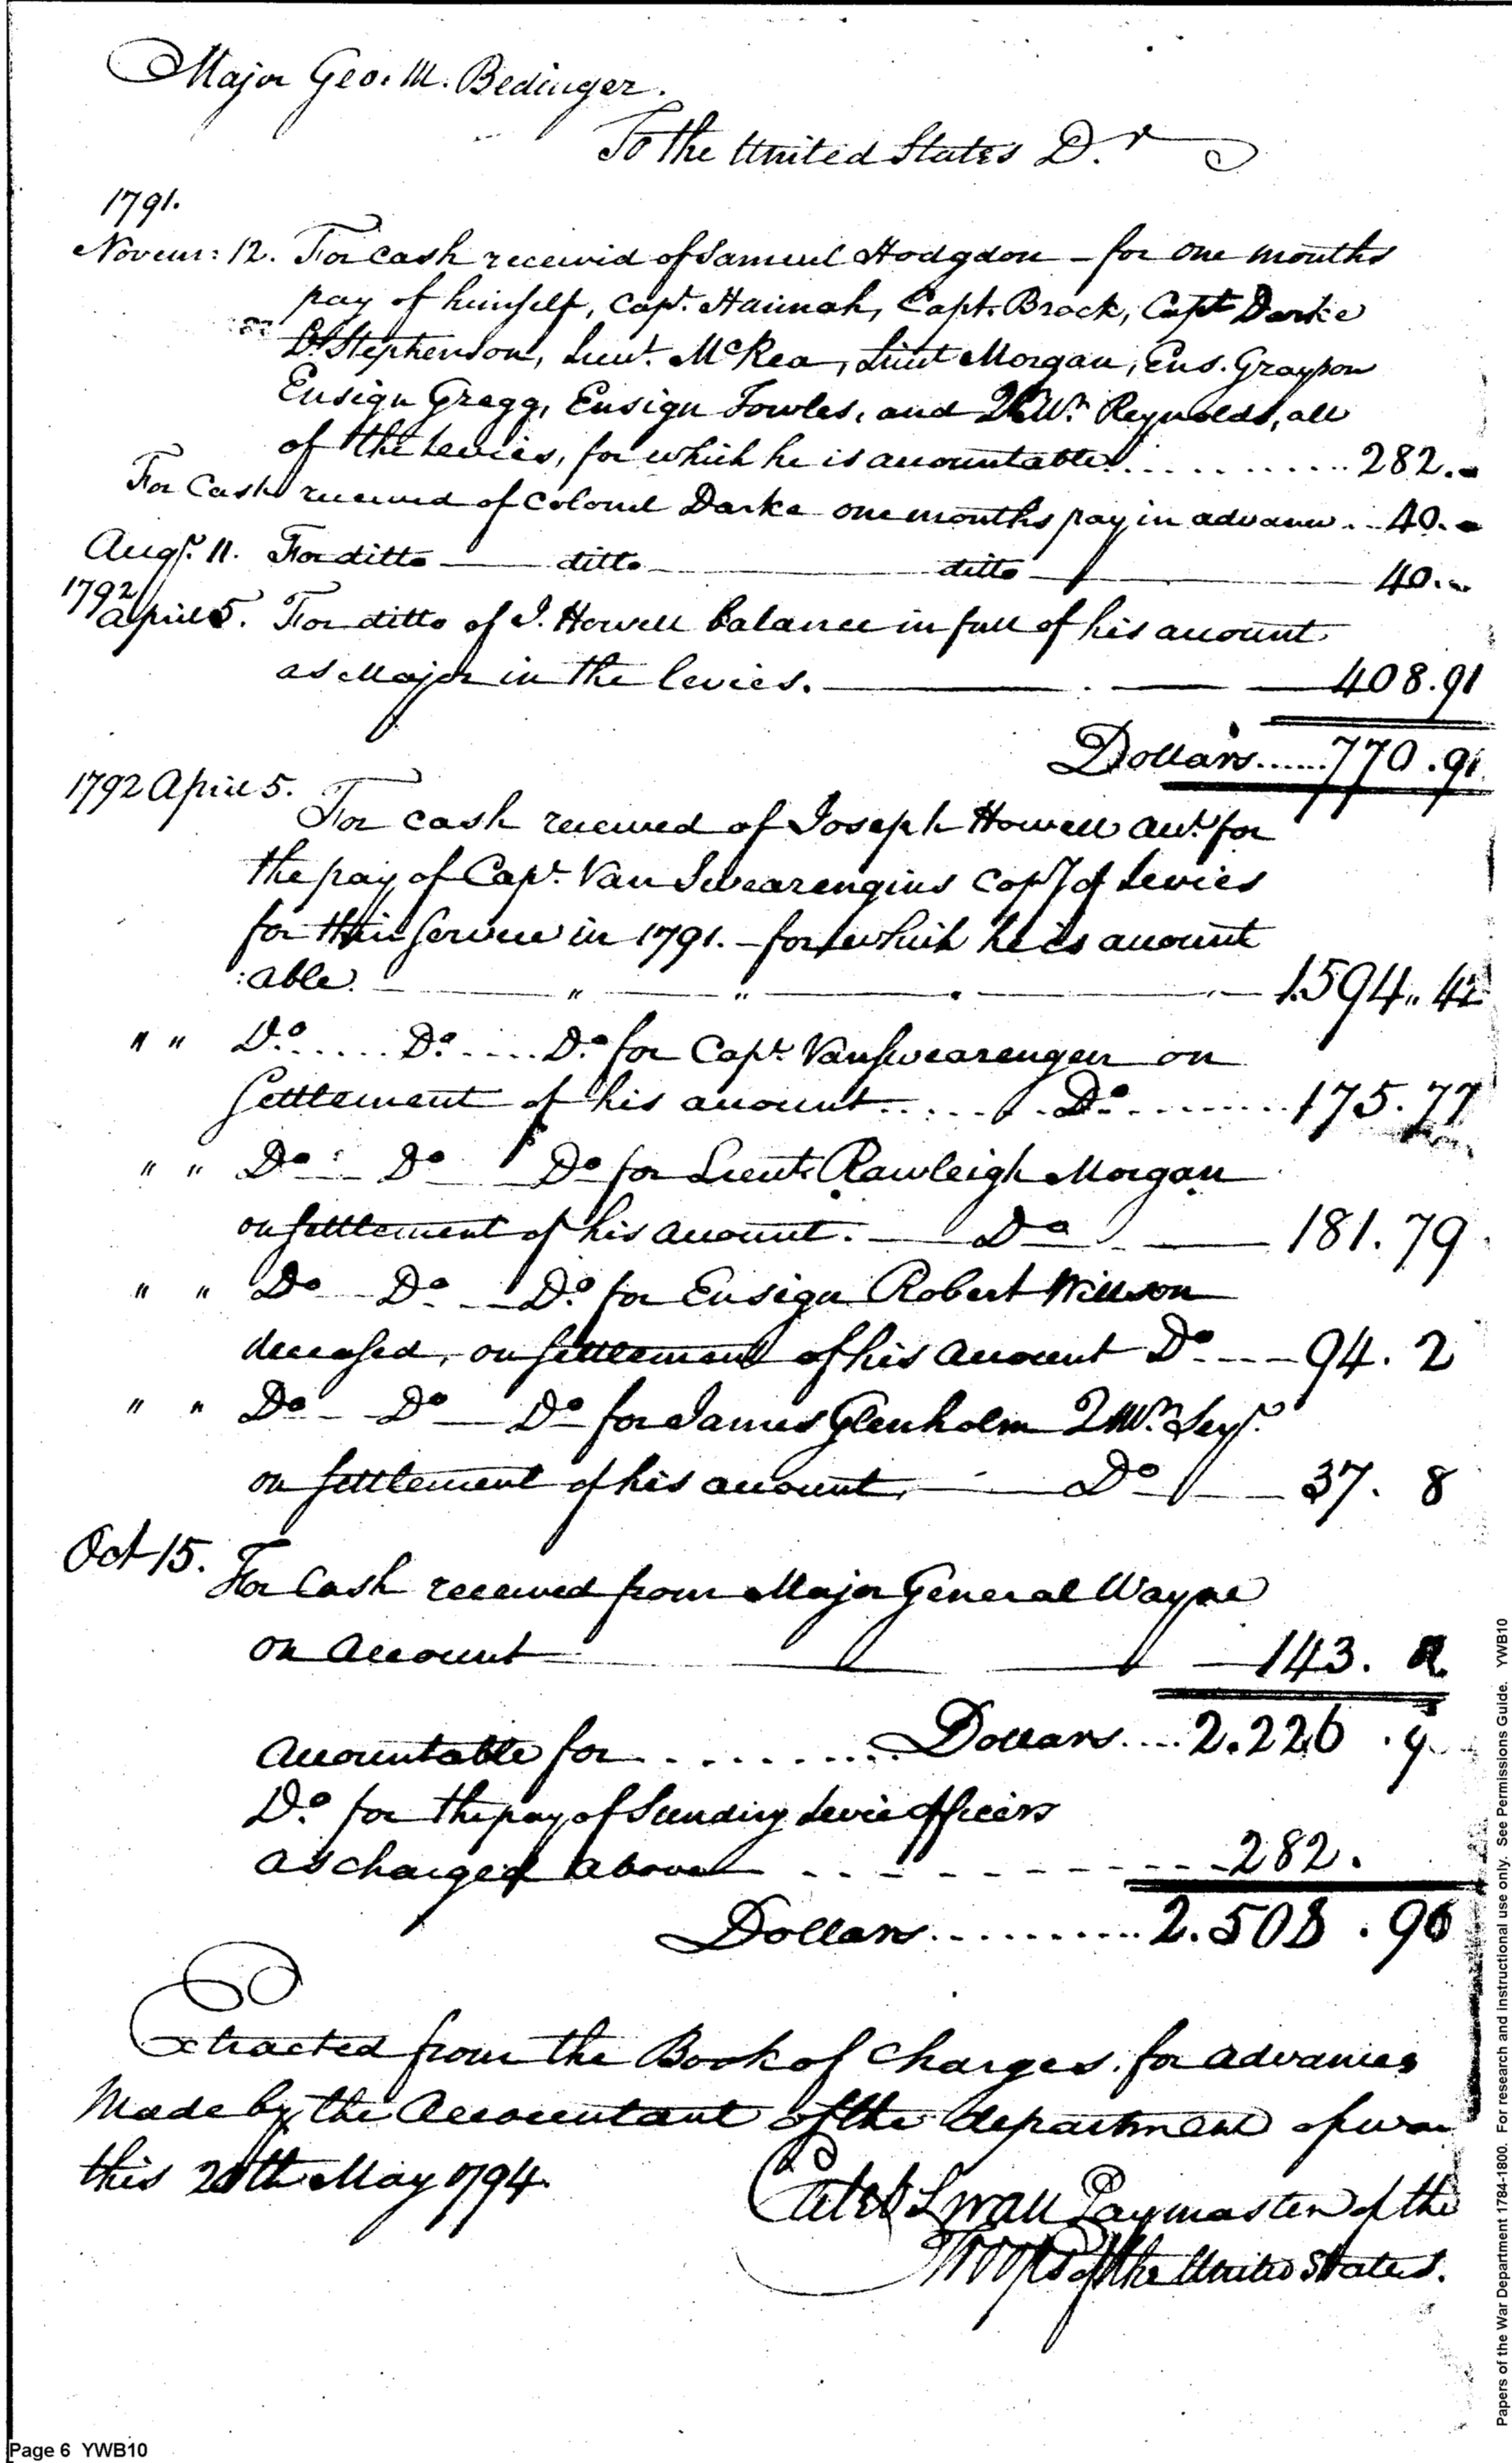 Major Geo. M. Bedinger.
To the United States Dr
1791.
Novem: 12. For cash received of Samuel Hodgdon - for one months
pay of himself, Capt. Hannah, Capt. Brock, Capt Darke
Dr Stephenson, Lieut. McRea, Lieut Morgan, Ens. Grayson
Ensign Gregg, Ensign Fowles, and Qr Mr Reynolds, all
of the Levies, for which he is accountable ............ 282.
For Cash received of Colonel Darke one months pay in advance .. 40.
Augt. 11. For ditto — ditto — ditto — 40.
1792
April 5. For ditto of J. Howell balance in full of his account
as Major in the levies. — 408.91
Dollars ...... 770.91
1792 April 5.
For cash received of Joseph Howell acct. for
the pay of Capt. Van Swearengins Compy of Levies
for their Service in 1791. - for which he is account
:able. — " — " — 1.594..42
" " Do ..... Do ..... Do for Capt. Van Swearengen on
Settlement of his account ..... Do ....... 175.77
" " Do Do Do for Lieut. Rawleigh Morgan
on settlement of his account. — Do — 181.79
" " Do Do Do for Ensign Robert Willson
deceased, on settlement of his account Do ---- 94. 2
" " Do Do Do for James Glenholm 2 Mr. Serjt.
on settlement of his account, — Do — 37. 8
Oct 15. For Cash received from Major General Wayne
on account — 143.
Accountable for .......... Dollars .... 2.226 . 9
Do. for the pay of Sundry Levie officers
as charged above - - - - - - - - - 282.
Dollars .......... 2.508 . 96
Extracted from the Book of Charges for advances
Made by the Accountant of the department of war
this 20th May 1794.
Caleb Swan Paymaster of the
Troops of the United States.
Page 6 YWB10
Papers of the War Department 1784-1800. For research and instructional use only. See Permissions Guide. YWB10